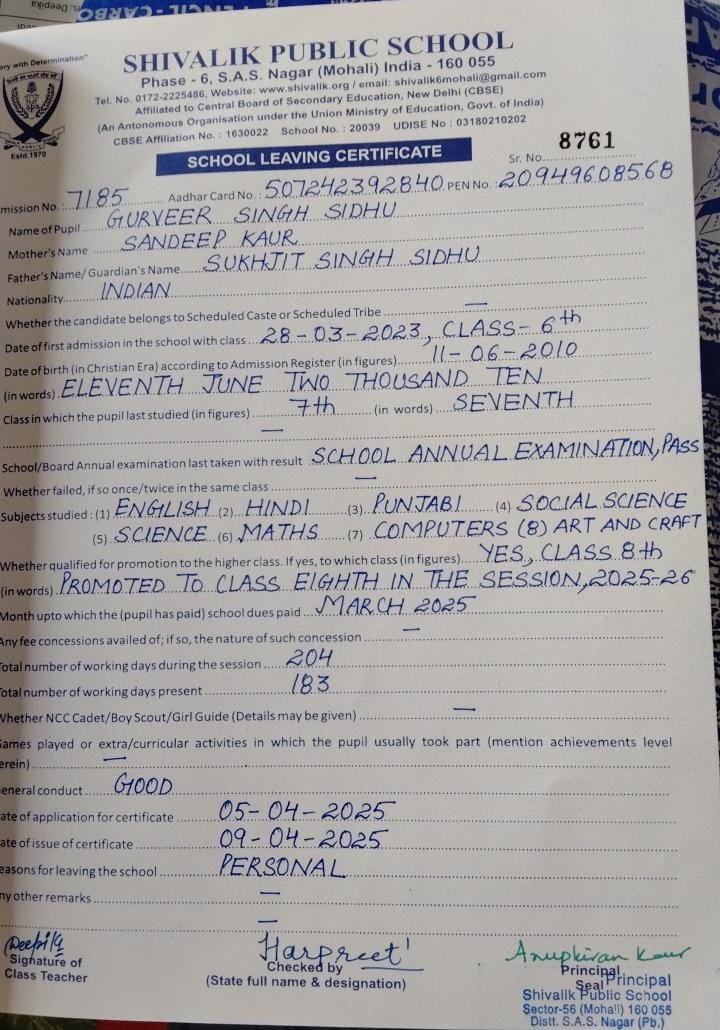 s, Deepika
PENCIL - CARBO
ory with Determination"
SHIVALIK PUBLIC SCHOOL
Phase - 6, S.A.S. Nagar (Mohali) India - 160 055
Tel. No. 0172-2225486, Website: www.shivalik.org / email: shivalik6mohali@gmail.com
Affiliated to Central Board of Secondary Education, New Delhi (CBSE)
(An Antonomous Organisation under the Union Ministry of Education, Govt. of India)
CBSE Affiliation No. : 1630022 School No. : 20039 UDISE No : 03180210202
PUBLIC
Estd.1970
SCHOOL LEAVING CERTIFICATE
Sr. No. 8761
mission No.: 7185 Aadhar Card No.: 507242392840 PEN No.: 20949608568
Name of Pupil GURVEER SINGH SIDHU
Mother's Name SANDEEP KAUR
Father's Name/ Guardian's Name SUKHJIT SINGH SIDHU
Nationality INDIAN
Whether the candidate belongs to Scheduled Caste or Scheduled Tribe —
Date of first admission in the school with class 28-03-2023, CLASS-6th
Date of birth (in Christian Era) according to Admission Register (in figures) 11-06-2010
(in words) ELEVENTH JUNE TWO THOUSAND TEN
Class in which the pupil last studied (in figures) 7th (in words) SEVENTH
—
School/Board Annual examination last taken with result SCHOOL ANNUAL EXAMINATION, PASS
Whether failed, if so once/twice in the same class —
Subjects studied : (1) ENGLISH (2) HINDI (3) PUNJABI (4) SOCIAL SCIENCE
(5) SCIENCE (6) MATHS (7) COMPUTERS (8) ART AND CRAFT
Whether qualified for promotion to the higher class. If yes, to which class (in figures) YES, CLASS 8th
(in words) PROMOTED TO CLASS EIGHTH IN THE SESSION, 2025-26
Month upto which the (pupil has paid) school dues paid MARCH 2025
Any fee concessions availed of; if so, the nature of such concession —
Total number of working days during the session 204
Total number of working days present 183
Whether NCC Cadet/Boy Scout/Girl Guide (Details may be given) —
Games played or extra/curricular activities in which the pupil usually took part (mention achievements level
erein) —
eneral conduct GOOD
ate of application for certificate 05-04-2025
ate of issue of certificate 09-04-2025
easons for leaving the school PERSONAL
ny other remarks —
—
Deepika Harpreet Anupkiran Kaur
Signature of Class Teacher
Checked by
(State full name & designation)
Principal
Seal
Principal
Shivalik Public School
Sector-56 (Mohali) 160 055
Distt. S.A.S. Nagar (Pb.)